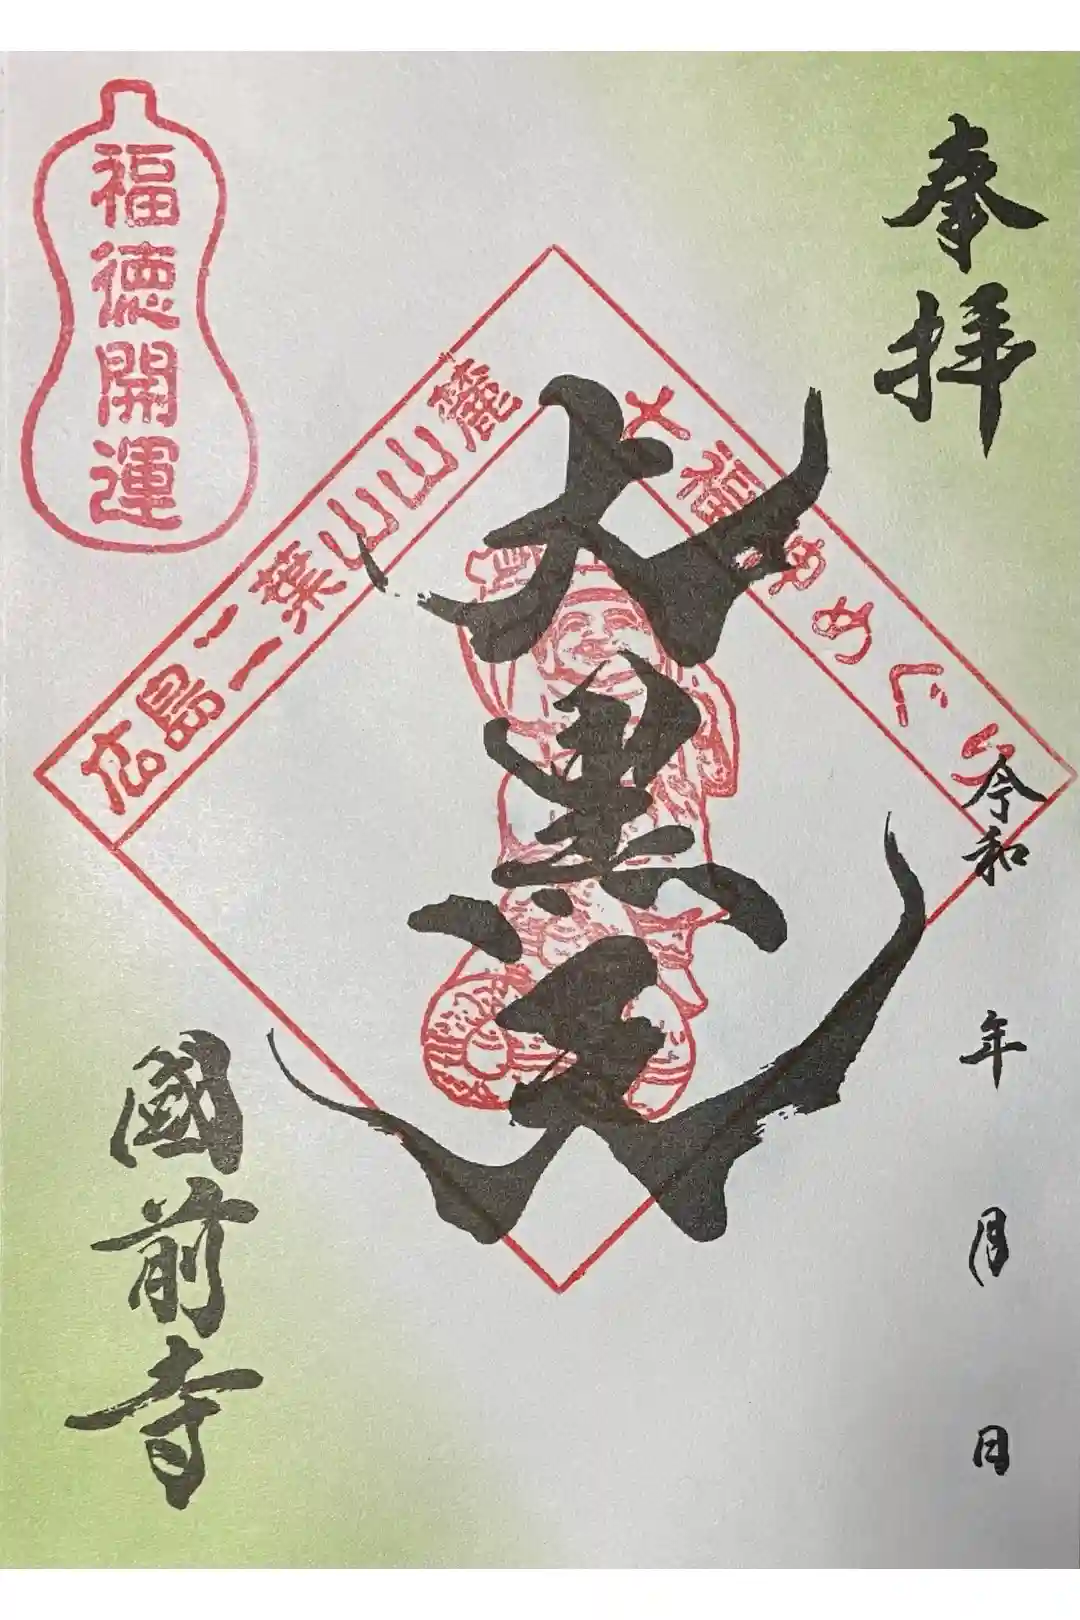 奉拝
七福神めぐり
令和 年 月 日
大黒天
広島二葉山山麓
福徳開運
國前寺